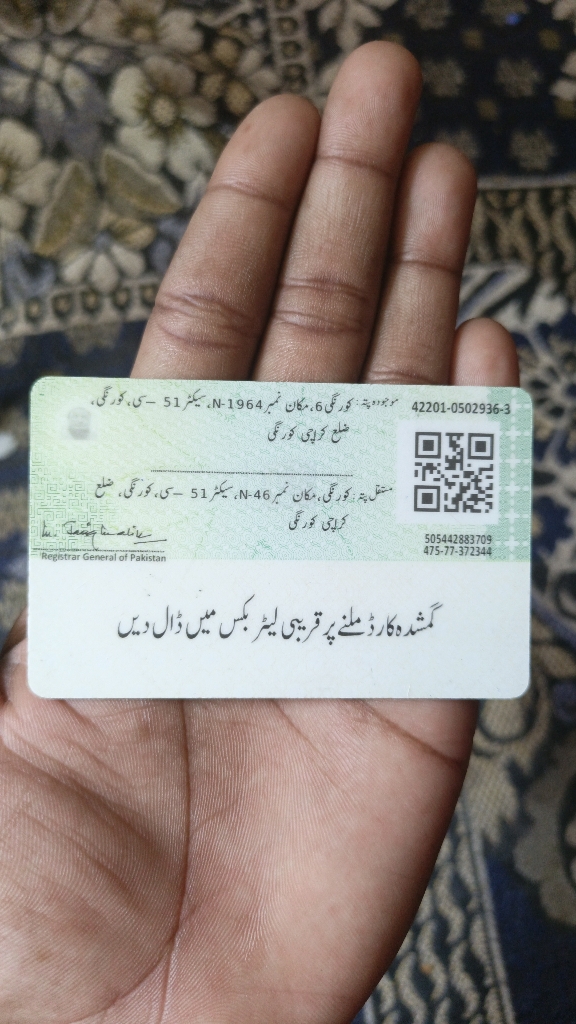 موجودہ پتہ: کورنگی 6، مکان نمبر N-1964، سیکٹر 51 –سی، کورنگی،
ضلع کراچی کورنگی
42201-0502936-3
مستقل پتہ: کورنگی، مکان نمبر N-46، سیکٹر 51 –سی، کورنگی، ضلع
کراچی کورنگی
505442883709
475-77-372344
Registrar General of Pakistan
گمشدہ کارڈ ملنے پر قریبی لیٹر بکس میں ڈال دیں